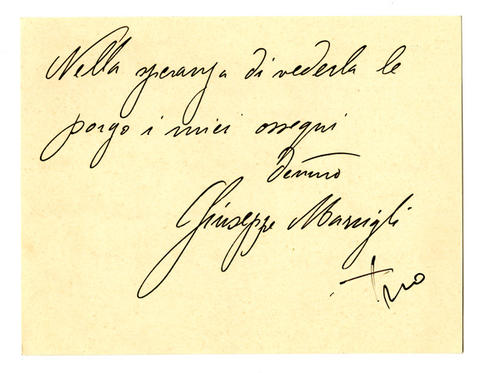 Nella speranza di vederla le
porgo i miei ossequi
Devmo
Giuseppe Marsigli